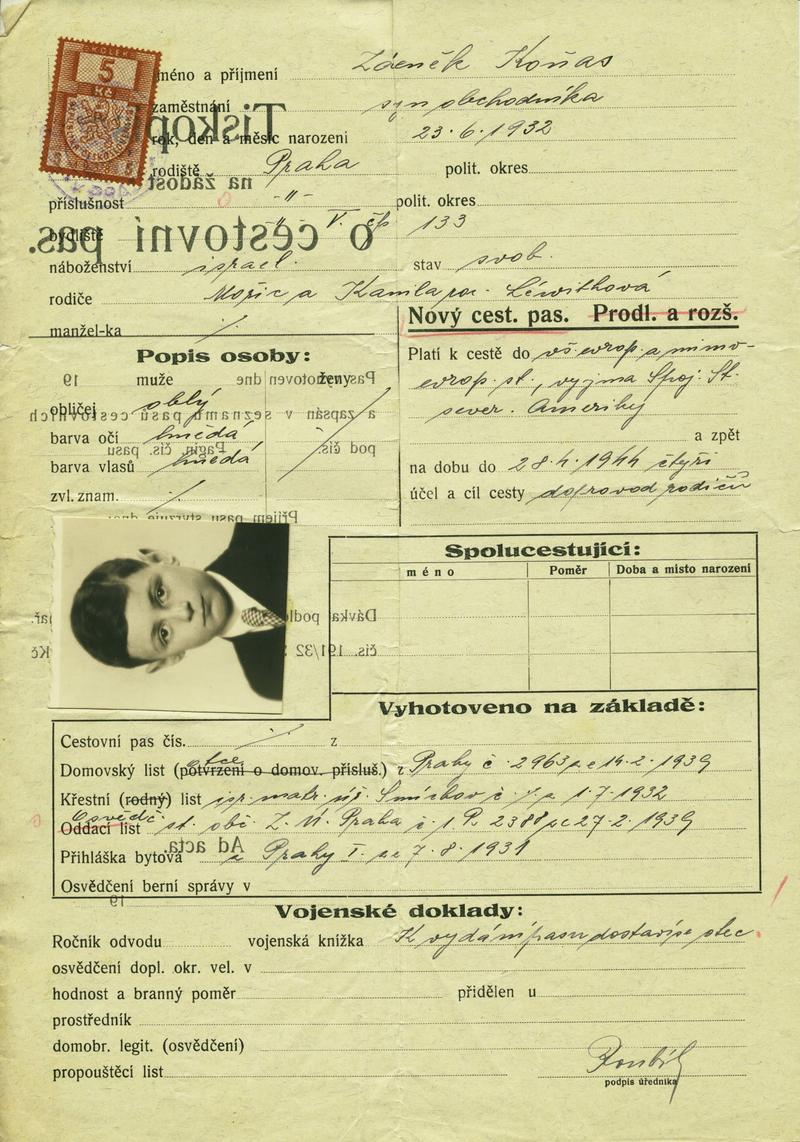 KOLEK
5
Kč
5 5
Jméno a příjmení Zdeněk Koňas
zaměstnání syn obchodníka
rok, den a měsíc narození 23.6.1932
rodiště Praha polit. okres
příslušnost -"- polit. okres
bydliště " V. čp 133
náboženství israel. stav svob.
rodiče Mořic a Kamila roz. Léwithová
manžel-ka
Nový cest. pas. Prodl. a rozš.
Popis osoby:
muže ženy
obličej oblý
barva očí hnědá
barva vlasů hnědá
zvl. znam.
Platí k cestě do vš. evrop. a mimo-
evrop. st., vyjma Spoj. St.
sever. Ameriky
a zpět
na dobu do 28.4.1944 čtyři
účel a cíl cesty doprovod rodičů
Spolucestující:
méno Poměr Doba a misto narození
Vyhotoveno na základě:
Cestovní pas čís. z
otce
Domovský list (potvrzení o domov. přísluš.) z Prahy č. 2963 ze 14.2.1939
Křestní (rodný) list isr. matr. úř. Smíchov č. z 1.7.1932
Osvědč.
Oddací list st. obč. Z. Ú. Praha č. 1 P. 2388 ze 27.2.1939
Přihláška bytová z Prahy I. ze 7.8.1931
Osvědčení berní správy v
Vojenské doklady:
Ročník odvodu vojenská knížka K vydání pasu dostaví se otec.
osvědčení dopl. okr. vel. v
hodnost a branný poměr přidělen u
prostředník
domobr. legit. (osvědčení)
propouštěcí list
podpis úředníka
Tiskop
na žádost
o cestovní pas.
Pas vyhotoven dne 19
a zapsán v seznamu pasů cestovních
pod čís. Pagin. čís. pasu
Příjem pasu stvrzuje dne:
Dávka podle
čís. 191/32 Kč
Ad acta.
19